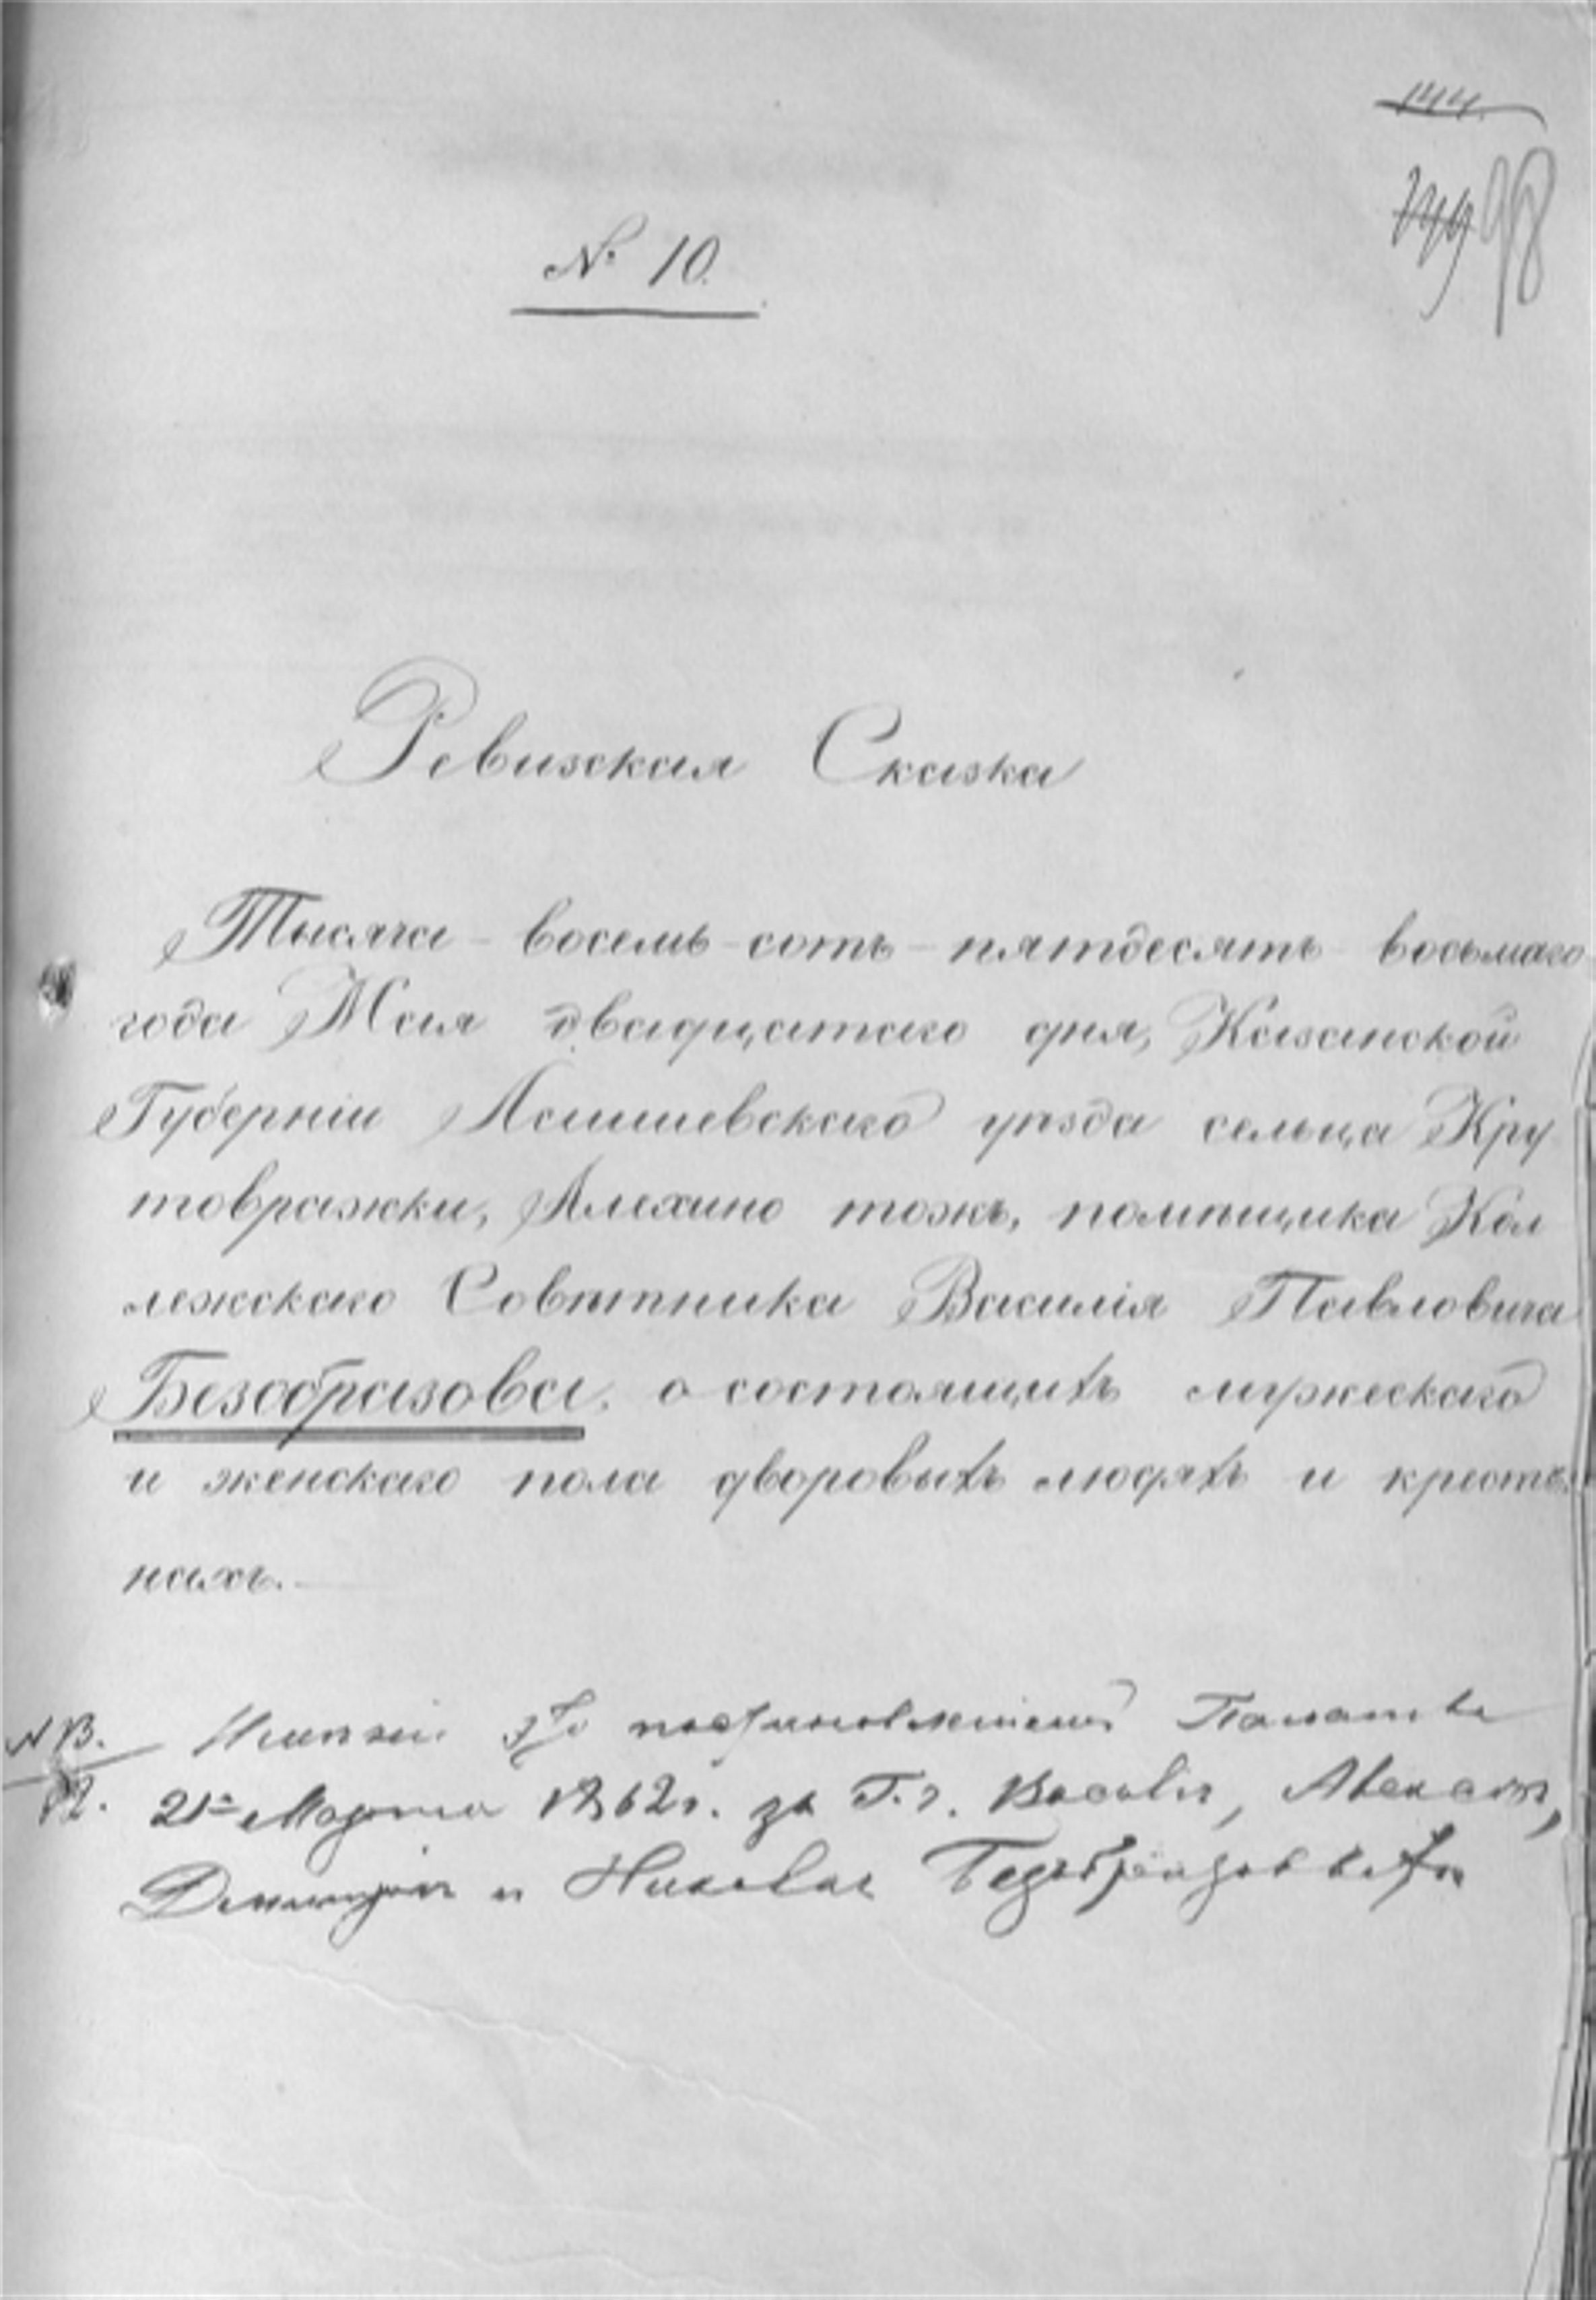 144.
149 98
№ 10.
Ревизская Сказка
Тысяча - восемь - сотъ - пятдесятъ восьмаго
года Мая двадцатаго дня, Казанской
Губерніи Лаишевскаго уѣзда сельца Кру
товражки, Алехино тожъ, помѣщика Кол
лежскаго Совѣтника Василія Павловича
Безобразова, о состоящихъ мужескаго
и женскаго пола дворовыхъ людяхъ и кресть
нахъ.
NB. Палаты
21го Марта 1862г. за Г.г. Алексѣя,
Дмитрія и Николая